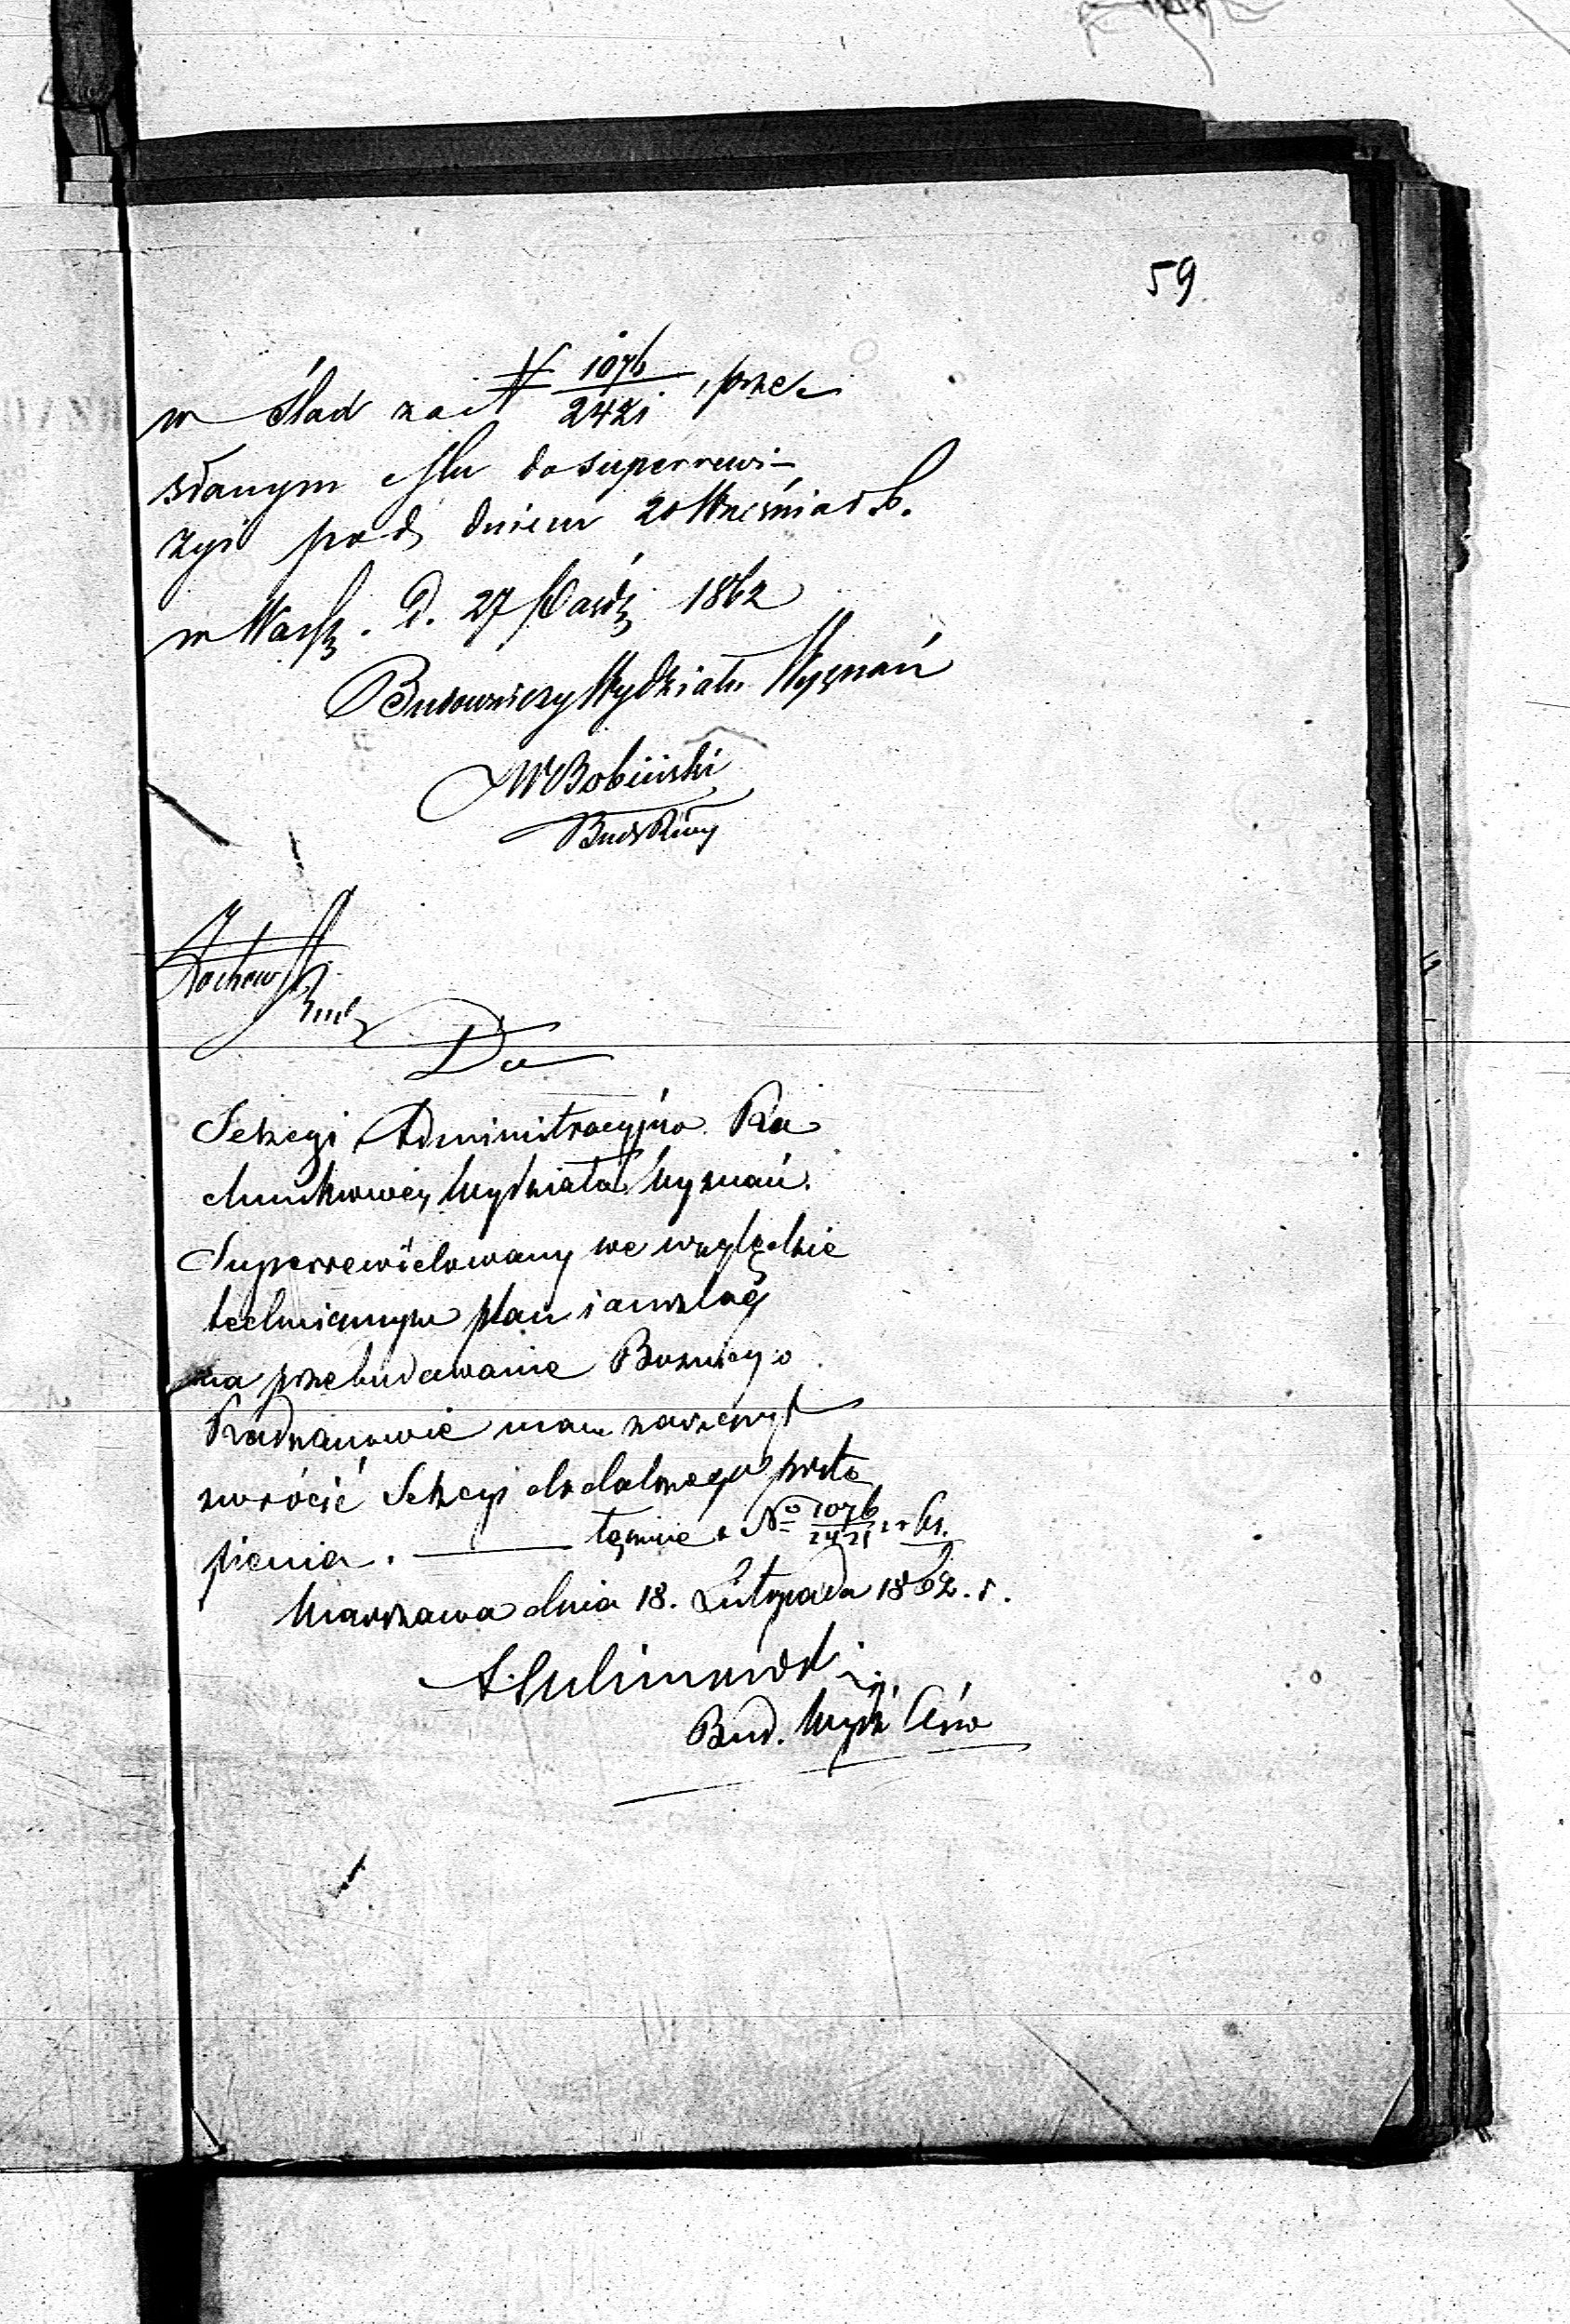 59
w ślad za N 1076/2421, prze-
słanym Mu do superrewi-
zyi pod dniem 20 Września r. b.
w Warsz. d. 27 Paźdz 1862
Budowniczy Wydziału Wyznań
W Bobiński
Bud
Do
Sekcyi Administracyjno Ra
chunkowéj Wydziału Wyznań.
Superrewidowany we względzie
technicznym plan i anszlag
na przebudowanie Bożnicy w
Radzanowie mam zaszczyt
zwrócić Sekcyi do dalszego postą
pienia. łącznie z No 1076/2421
Warszawa dnia 18. Listopada 1862. r.
Bud. Wydź